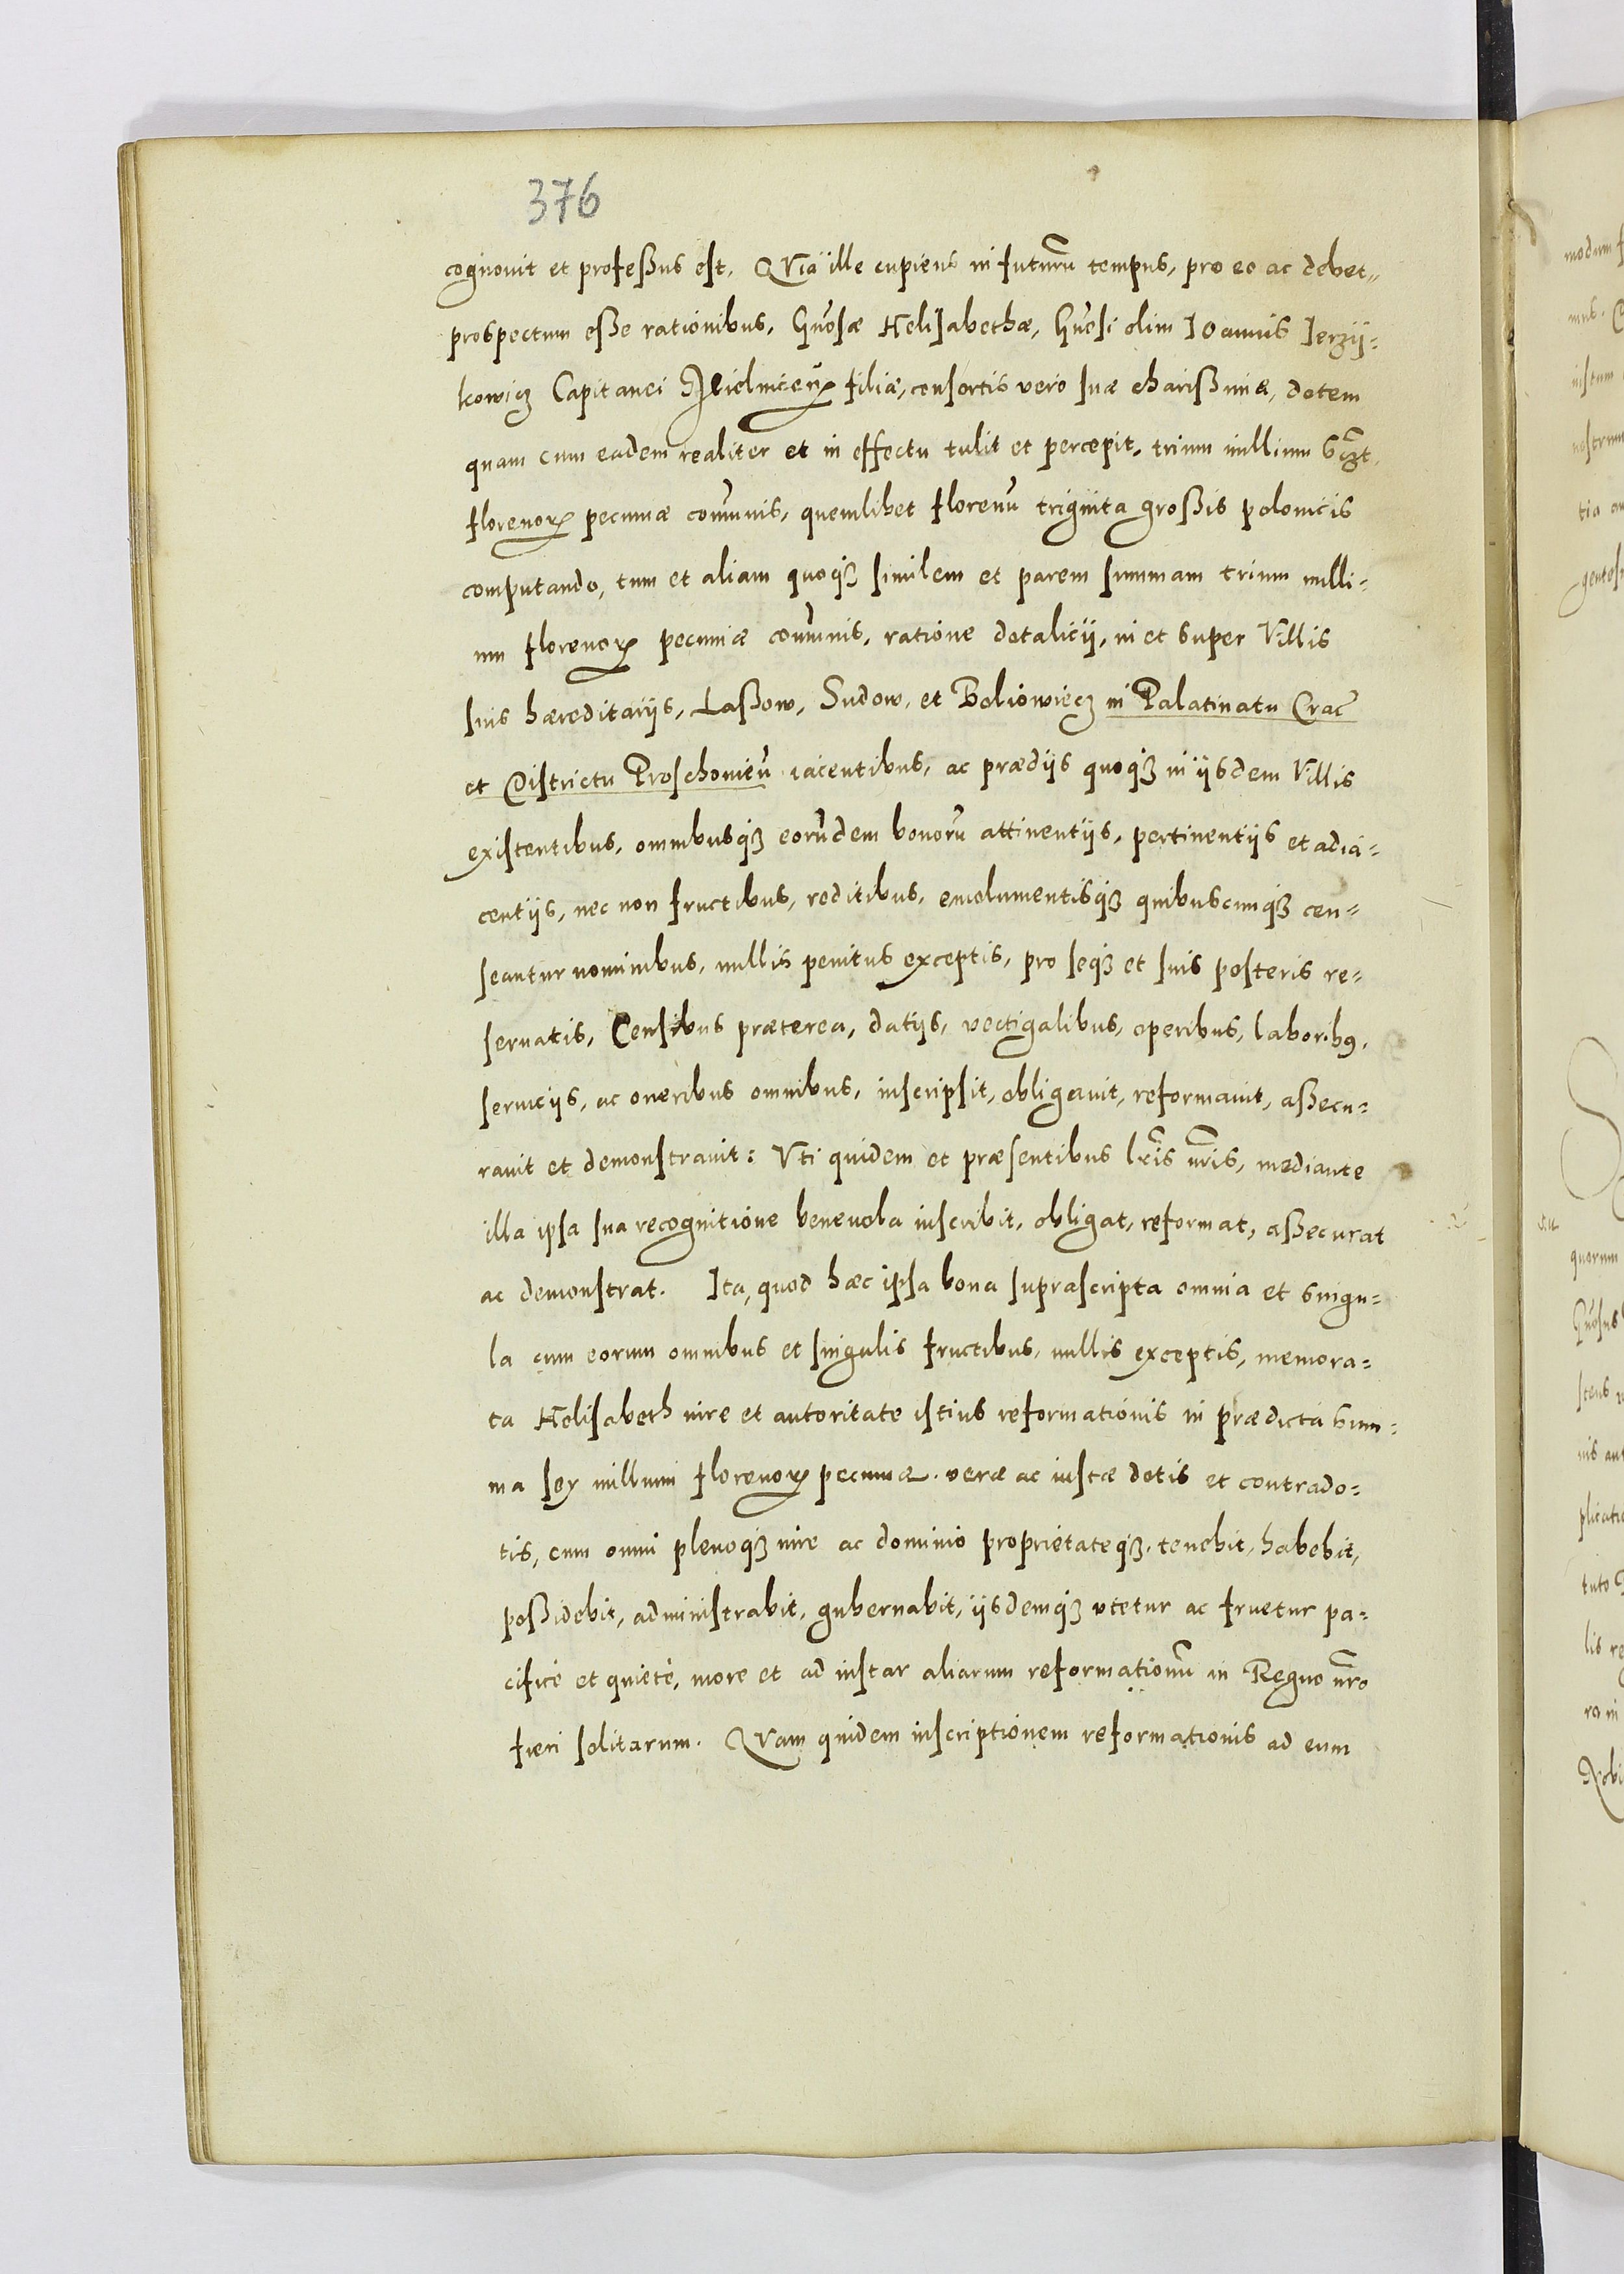 376
cognouit et profeßus est. QVia ille cupiens in futurũ tempus, pro eo ac debet„
prospectum eße rationibus, Gñosæ Helisabethæ, Gñosi olim Ioannis Ierzij=
kowicz Capitanei filiæ, consortis vero suæ charißimæ, dotem
quam cum eadem realiter et in effectu tulit et percepit, trium millium
florenoꝝ pecuniæ cõmunis, quemlibet florenũ triginta großis polonicis
computando, tum et aliam quoqꝫ similem et parem summam trium milli=
um florenoꝝ pecuniæ cõmunis, ratione dotalicij, in et super Villis
suis hæreditarijs, Laßow, Sudow, et Boliowiecz in Palatinatu Crac̃
et Districtu Proschouieñ iacentibus, ac prædijs quoqꝫ in ijsdem Villis
existentibus, omnibusqꝫ eorũdem bonorũ attinentijs, pertinentijs et adia=
centijs, nec non fructibus, reditibus, emolumentisqꝫ quibuscunqꝫ cen=
seantur nominibus, nullis penitus exceptis, pro seqꝫ et suis posteris re=
seruatis, Censibus præterea, datijs, vectigalibus, operibus, laboribꝯ,
seruicijs, ac oneribus omnibus, inscripsit, obligauit, reformauit, aßecu=
rauit et demonstrauit: Vti quidem et præsentibus lr̃is nr̃is, mediante
illa ipsa sua recognitione beneuola inscribit, obligat, reformat, aßecurat
ac demonstrat. Ita, quod hæc ipsa bona suprascripta omnia et singu=
la cum eorum omnibus et singulis fructibus, nullis exceptis, memora=
ta Helisabeth iure et autoritate istius reformationis in prædicta sum=
ma sex millium florenoꝝ pecuniæ, veræ ac iustæ dotis et contrado=
tis, cum omni plenoqꝫ iure ac dominio proprietateqꝫ, tenebit, habebit,
poßidebit, administrabit, gubernabit, ijsdemqꝫ vtetur ac fruetur pa=
cificè et quietè, more et ad instar aliarum reformationũ in Regno nr̃o
fieri solitarum. QVam quidem inscriptionem reformationis ad eum